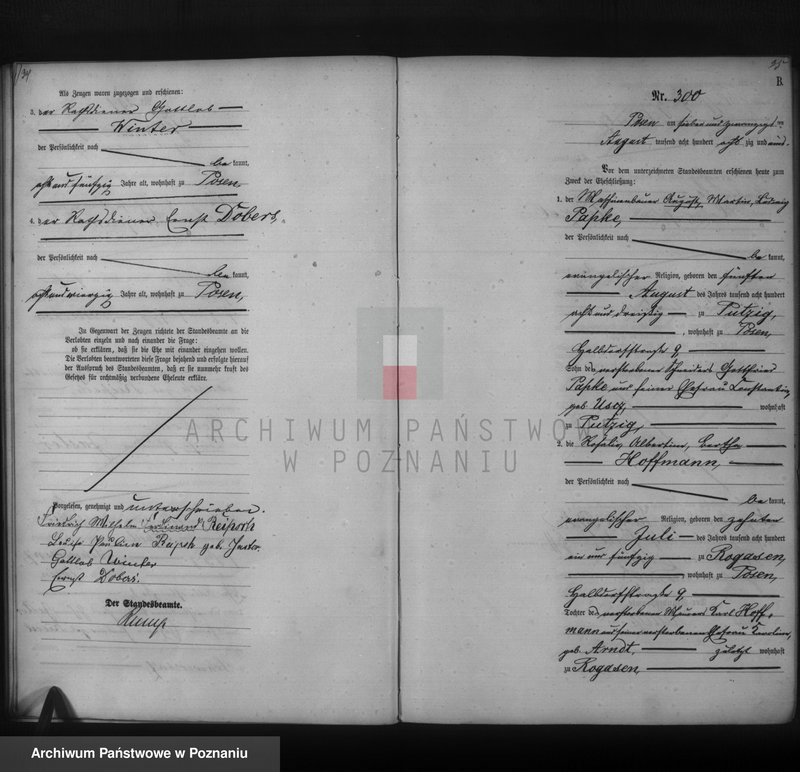 Als Zeugen waren zugezogen und erschienen:
3. der Rathsdiener Gottlob
Winter
der Persönlichkeit nach
be kannt,
acht und fünfzig Jahre alt, wohnhaft zu Posen,
4. der Rathsdiener Ernst Dobers,
der Persönlichkeit nach
be kannt,
acht und vierzig Jahre alt, wohnhaft zu Posen,
In Gegenwart der Zeugen richtete der Standesbeamte an die
Verlobten einzeln und nach einander die Frage:
ob sie erklären, daß sie die Ehe mit einander eingehen wollen.
Die Verlobten beantworteten diese Frage bejahend und erfolgte hierauf
der Ausspruch des Standesbeamten, daß er sie nunmehr kraft des
Gesetzes für rechtmäßig verbundene Eheleute erkläre.
Vorgelesen, genehmigt und unterschrieben.
Friedrich Wilhelm Ferdinand
Pauline geb.
Gottlob Winter
Ernst Dobers.
Der Standesbeamte.
B.
Nr. 300
Posen am sieben und zwanzigsten
August tausend acht hundert acht zig und
Vor dem unterzeichneten Standesbeamten erschienen heute zum
Zweck der Eheschließung:
1. der Maschinenbauer August, Martin, Ludwig
Papke,
der Persönlichkeit nach
be kannt,
evangelischer Religion, geboren den fünften
August des Jahres tausend acht hundert
acht und dreißig zu Putzig,
, wohnhaft zu Posen,
Halbdorfstraße 9,
Sohn des verstorbenen Schneiders Gottfried
Papke und seiner Ehefrau Constantia,
geb. wohnhaft
zu Putzig,
2. die Rosalie Albertine, Bertha
Hoffmann,
der Persönlichkeit nach
be kannt,
evangelischer Religion, geboren den zehnten
Juli des Jahres tausend acht hundert
ein und fünfzig zu Rogasen,
, wohnhaft zu Posen,
Halbdorfstraße 9,
Tochter des verstorbenen Maurers Karl Hoff-
mann und seiner verstorbenen Ehefrau Karoline,
geb. Arndt, zuletzt wohnhaft
zu Rogasen,
ARCHIWUM PAŃSTWOWE
W POZNANIU
Archiwum Państwowe w Poznaniu